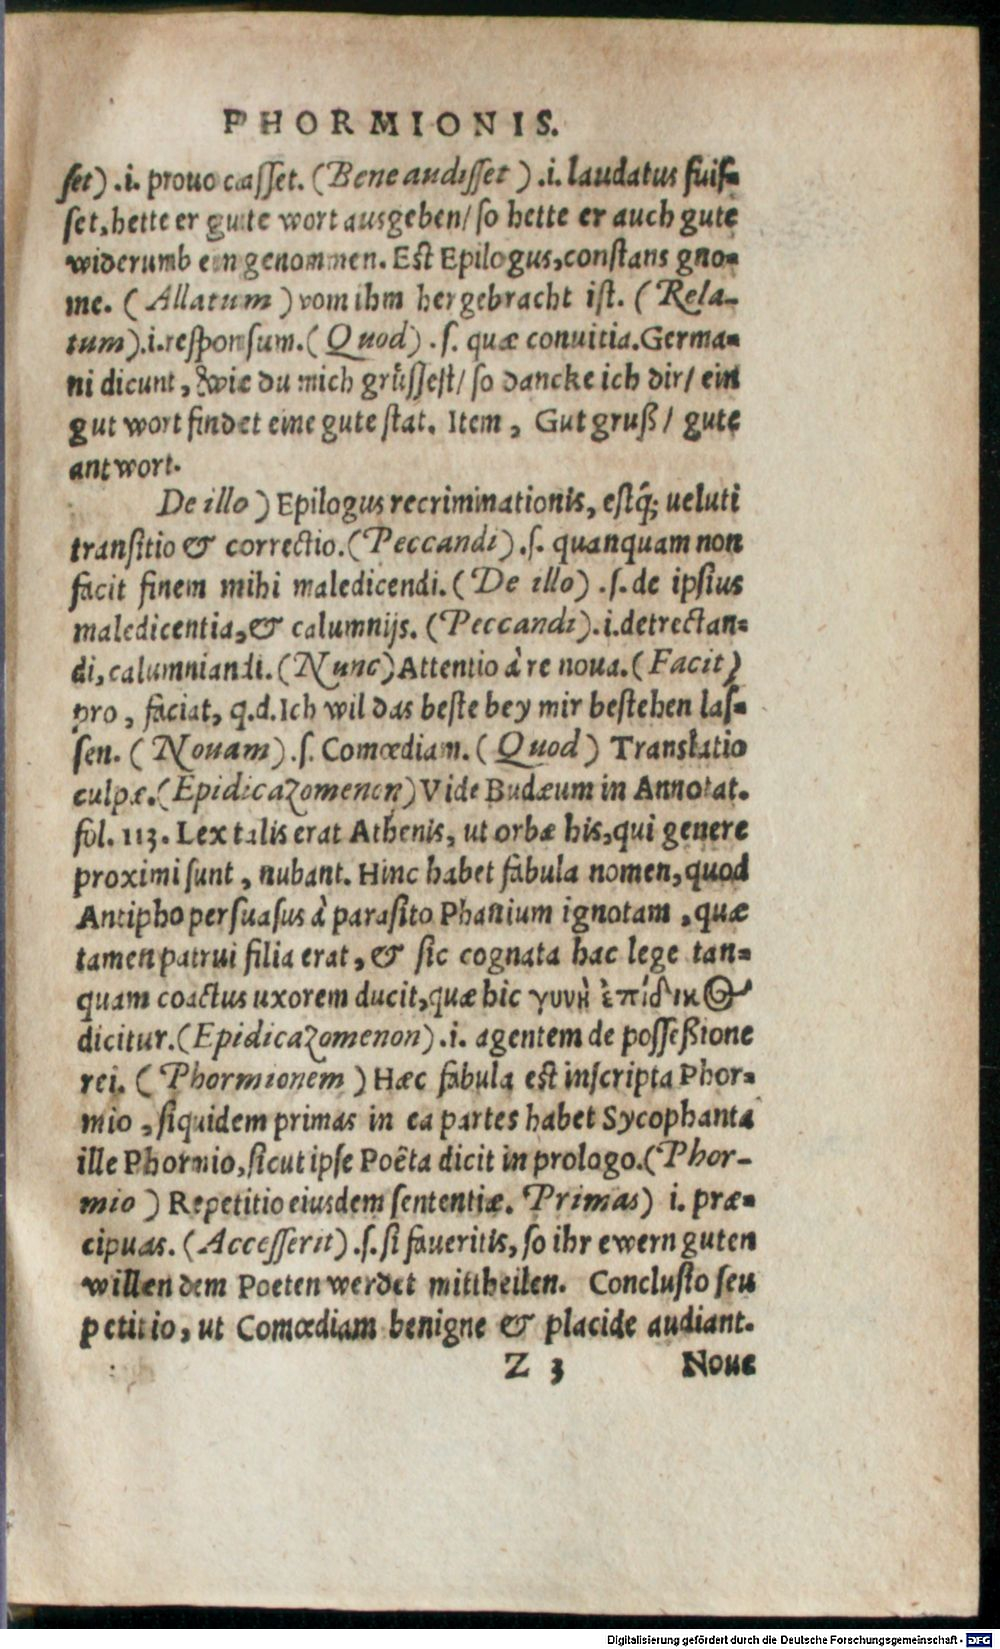 PHORMIONIS.
set) .i. prouocasset. (Bene audisset) .i. laudatus fuis-
set, hette er gute wort ausgeben/ so hette er auch gute
widerumb eingenommen. Est Epilogus, constans gno-
me. (Allatum) vom ihm hergebracht ist. (Rela-
tum) .i. responsum. (Quod) .s. quæ conuitia. Germa-
ni dicunt, wie du mich grüssest/ so dancke ich dir/ ein
gut wort findet eine gute stat. Item, Gut gruß/ gute
antwort.
De illo) Epilogus recriminationis, estq́; ueluti
transitio & correctio. (Peccandi) .s. quanquam non
facit finem mihi maledicendi. (De illo) .s. de ipsius
maledicentia, & calumnijs. (Peccandi) .i. detrectan-
di, calumniandi. (Nunc) Attentio à re noua. (Facit)
pro, faciat, q.d. Ich wil das beste bey mir bestehen las-
sen. (Nouam) .s. Comœdiam. (Quod) Translatio
culpæ. (Epidicazomenon) Vide Budæum in Annotat.
fol. 113. Lex talis erat Athenis, ut orbæ his, qui genere
proximi sunt, nubant. Hinc habet fabula nomen, quod
Antipho persuasus à parasito Phanium ignotam, quæ
tamen patrui filia erat, & sic cognata hac lege tan-
quam coactus uxorem ducit, quæ hic γυνὴ ἐπίδικος
dicitur. (Epidicazomenon) .i. agentem de possessione
rei. (Phormionem) Hæc fabula est inscripta Phor-
mio, siquidem primas in ea partes habet Sycophanta
ille Phormio, sicut ipse Poëta dicit in prologo. (Phor-
mio) Repetitio eiusdem sententiæ. Primas) i. præ-
cipuas. (Accesserit) .s. si faueritis, so ihr ewern guten
willen dem Poeten werdet mittheilen. Conclusio seu
petitio, ut Comœdiam benigne & placide audiant.
Z 3 Noue
Digitalisierung gefördert durch die Deutsche Forschungsgemeinschaft - DFG